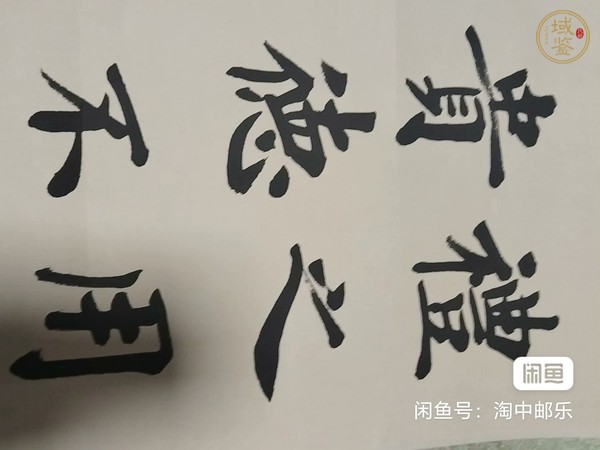 禮之用
貴德不
域鉴
闲鱼
闲鱼号：淘中邮乐